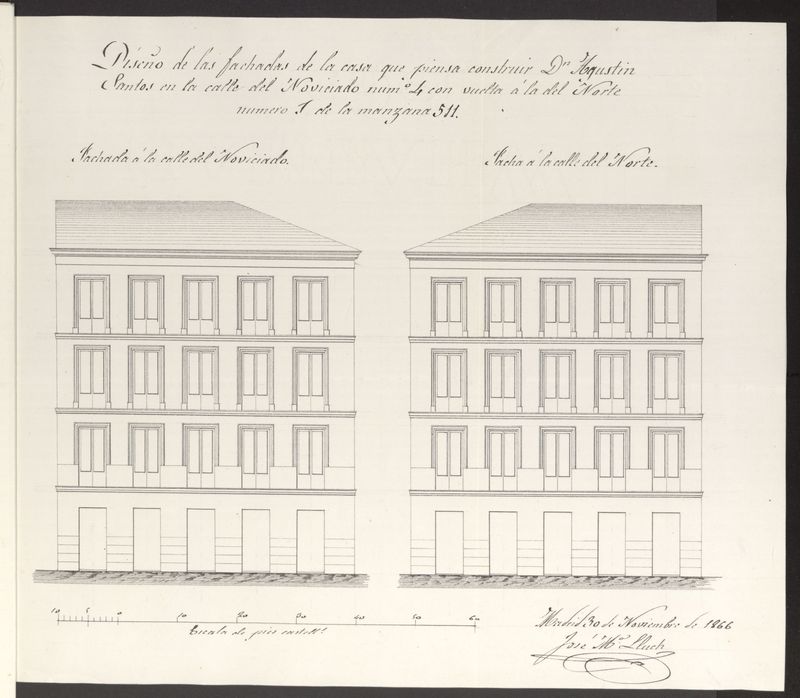 Diseño de las fachadas de la casa que piensa construir Dn Agustin
Santos en la calle del Noviciado numº 4 con vuelta á la del Norte
numero 1 de la manzana 511.
Fachada á la calle del Noviciado.
Facha á la calle del Norte.
10 5 0 10 20 30 40 50 60
Escala de pies castells
Madrid 30 de Noviembre de 1866
José Mª Lluch